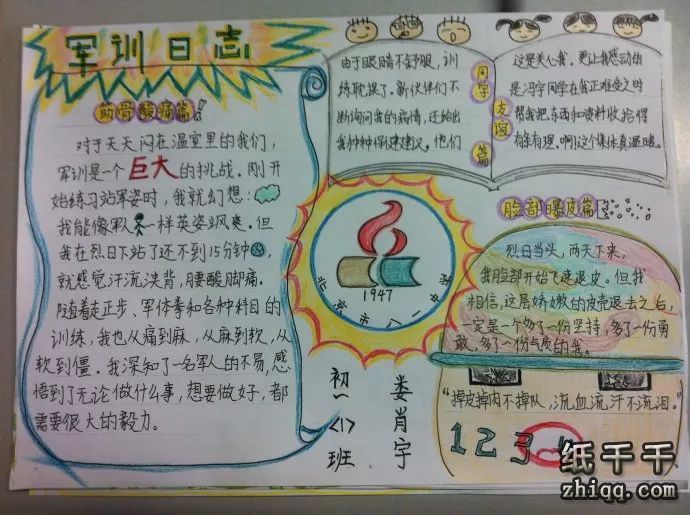 军训日志
筋骨酸痛篇
对于天天闷在温室里的我们,
军训是一个巨大的挑战。刚开
始练习站军姿时,我就幻想:
我能像军人一样英姿飒爽。但
我在烈日下站了还不到15分钟,
就感觉汗流浃背,腰酸脚痛。
随着走正步、军体拳和各种科目的
训练,我也从痛到麻,从麻到软,从
软到僵。我深知了一名军人的不易,感
悟到了无论做什么事,想要做好,都
需要很大的毅力。
同学友谊篇
由于眼睛不舒服,训
练耽误了。新伙伴们不
断询问我的病情,还给出
我种种保健建议。他们
这是关心我。更让我感动的
是冯宇同学在我正难受之时
帮我把东西和资料收拾得
有条有理。啊!这个集体真温暖。
1947
北京市八一中学
初一<1>班
娄肖宇
脸部曝皮篇
烈日当头,两天下来,
我脸部开始飞速退皮。但我
相信,这层娇嫩的皮壳退去之后,
一定是一个多了一份坚持,多了一份勇
敢,多了一份气质的我。
“掉皮掉肉不掉队,流血流汗不流泪。”
1 2 3 4
纸千千
zhiqq.com